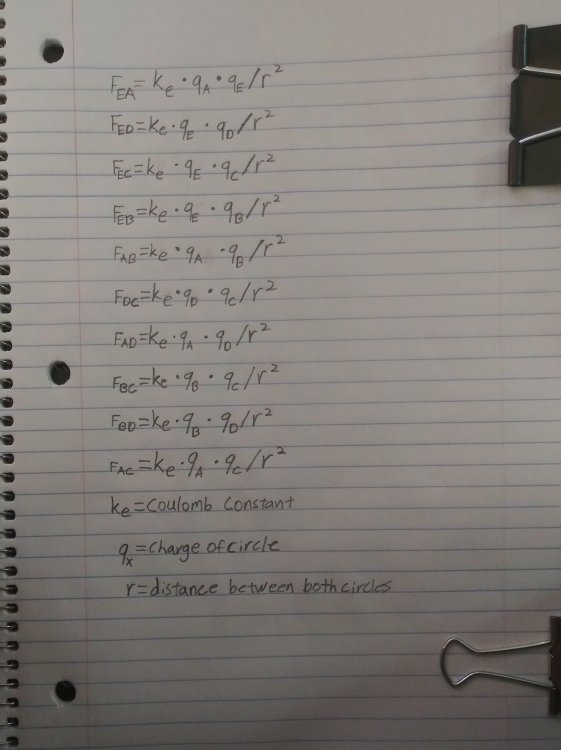 F_EA = k_e · q_A · q_E / r²
F_ED = k_e · q_E · q_D / r²
F_EC = k_e · q_E · q_C / r²
F_EB = k_e · q_E · q_B / r²
F_AB = k_e · q_A · q_B / r²
F_DC = k_e · q_D · q_C / r²
F_AD = k_e · q_A · q_D / r²
F_BC = k_e · q_B · q_C / r²
F_BD = k_e · q_B · q_D / r²
F_AC = k_e · q_A · q_C / r²
k_e = Coulomb Constant
q_x = charge of circle
r = distance between both circles